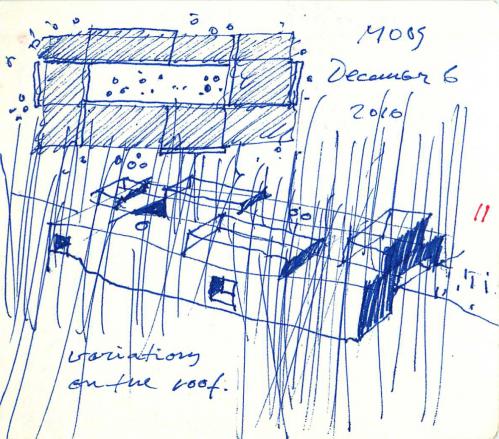 December 6
2010
11
variations
on the roof.